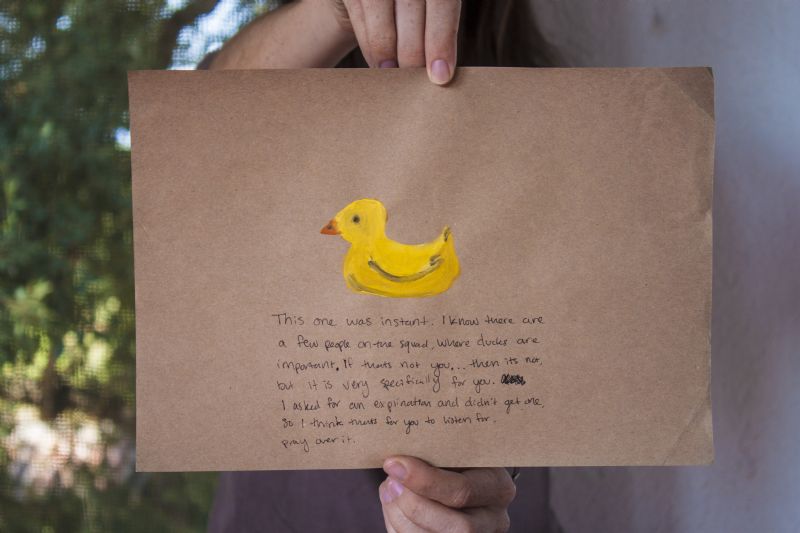 This one was instant. I know there are
a few people on the squad, where ducks are
important. If thats not you... then its not,
but it is very specifically for you.
I asked for an explination and didn't get one,
so I think thats for you to listen for.
pray over it.